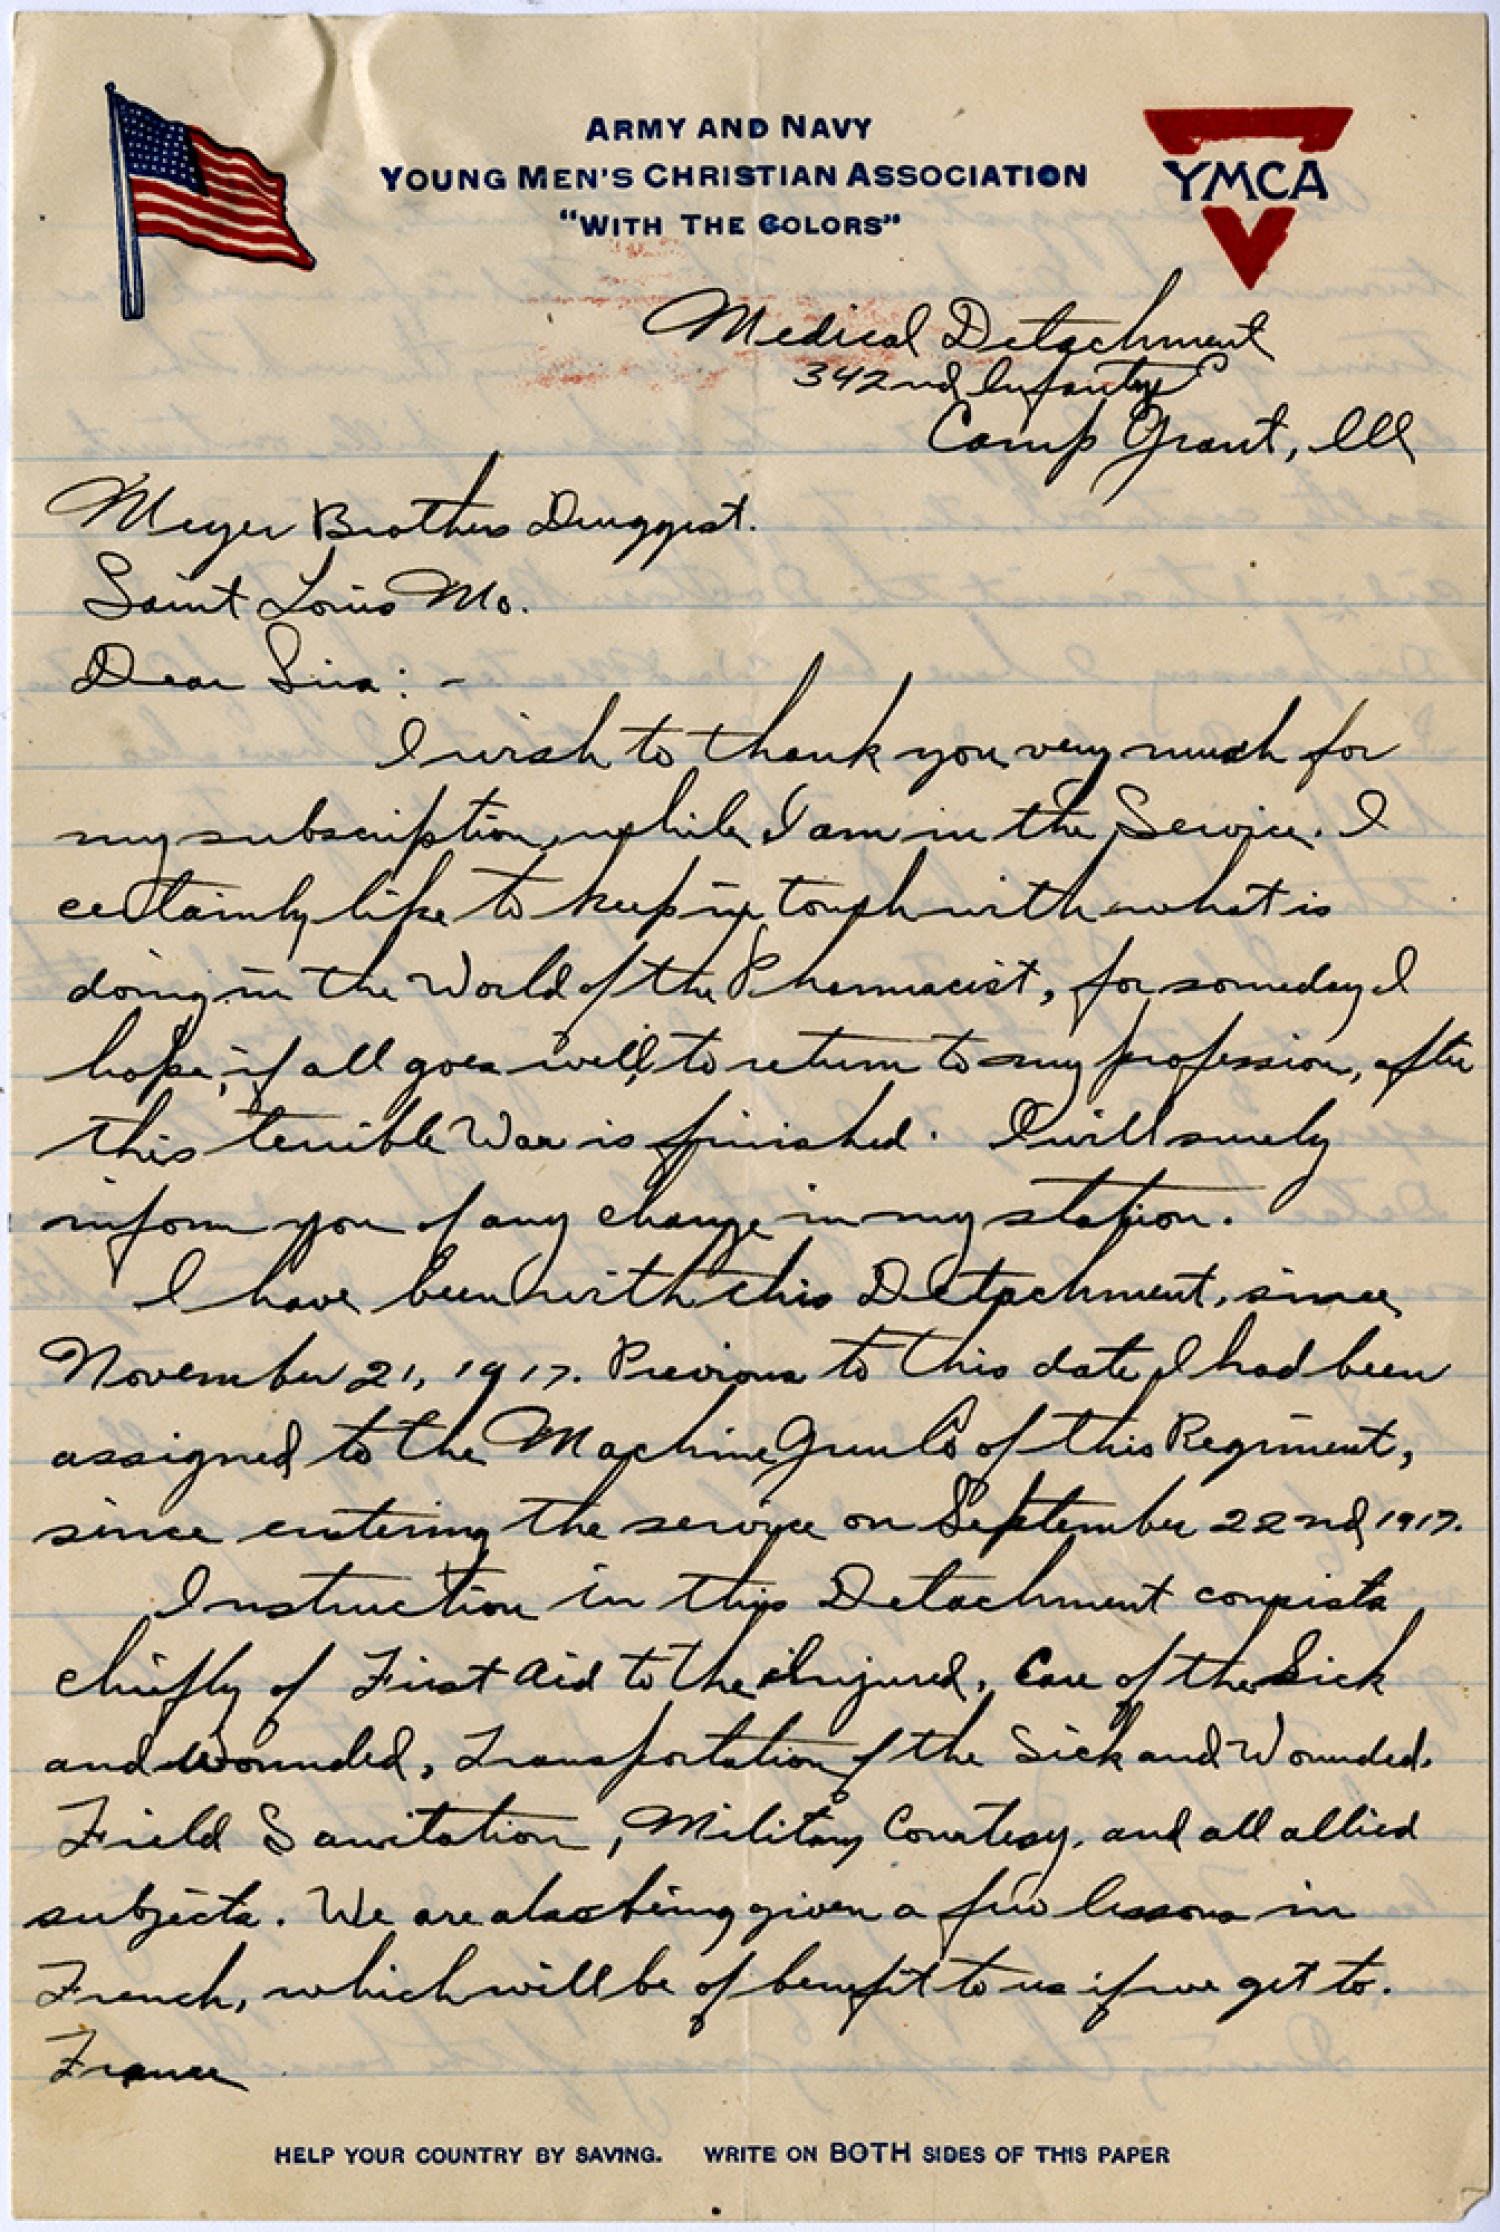 ARMY AND NAVY
YOUNG MEN'S CHRISTIAN ASSOCIATION
"WITH THE COLORS"
YMCA
Medical Detachment
342nd Infantry
Camp Grant, Ill
Meyer Brothers Druggist.
Saint Louis Mo.
Dear Sirs: -
I wish to thank you very much for
my subscription, while I am in the Service. I
certainly like to keep in touch with what is
doing in the World of the Pharmacist, for someday I
hope, if all goes well, to return to my profession, after
this terrible War is finished. I will surely
inform you of any change in my station.
I have been with this Detachment, since
November 21, 1917. Previous to this date, I had been
assigned to the Machine Gun Co of this Regiment,
since entering the service on September 22nd, 1917.
Instruction in this Detachment consists
chiefly of First Aid to the Injured, Care of the Sick
and Wounded, Transportation of the Sick and Wounded.
Field Sanitation, Military Courtesy, and all allied
subjects. We are also being given a few lessons in
French, which will be of benefit to us if we get to.
France
HELP YOUR COUNTRY BY SAVING. WRITE ON BOTH SIDES OF THIS PAPER